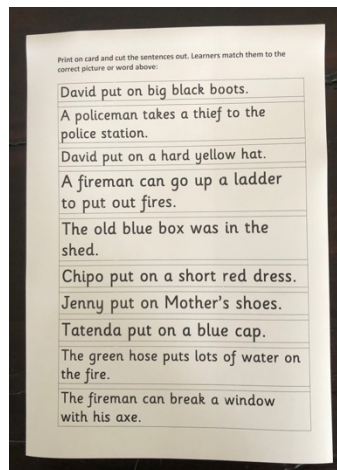 Print on card and cut the sentences out. Learners match them to the
correct picture or word above:
David put on big black boots.
A policeman takes a thief to the
police station.
David put on a hard yellow hat.
A fireman can go up a ladder
to put out fires.
The old blue box was in the
shed.
Chipo put on a short red dress.
Jenny put on Mother's shoes.
Tatenda put on a blue cap.
The green hose puts lots of water on
the fire.
The fireman can break a window
with his axe.